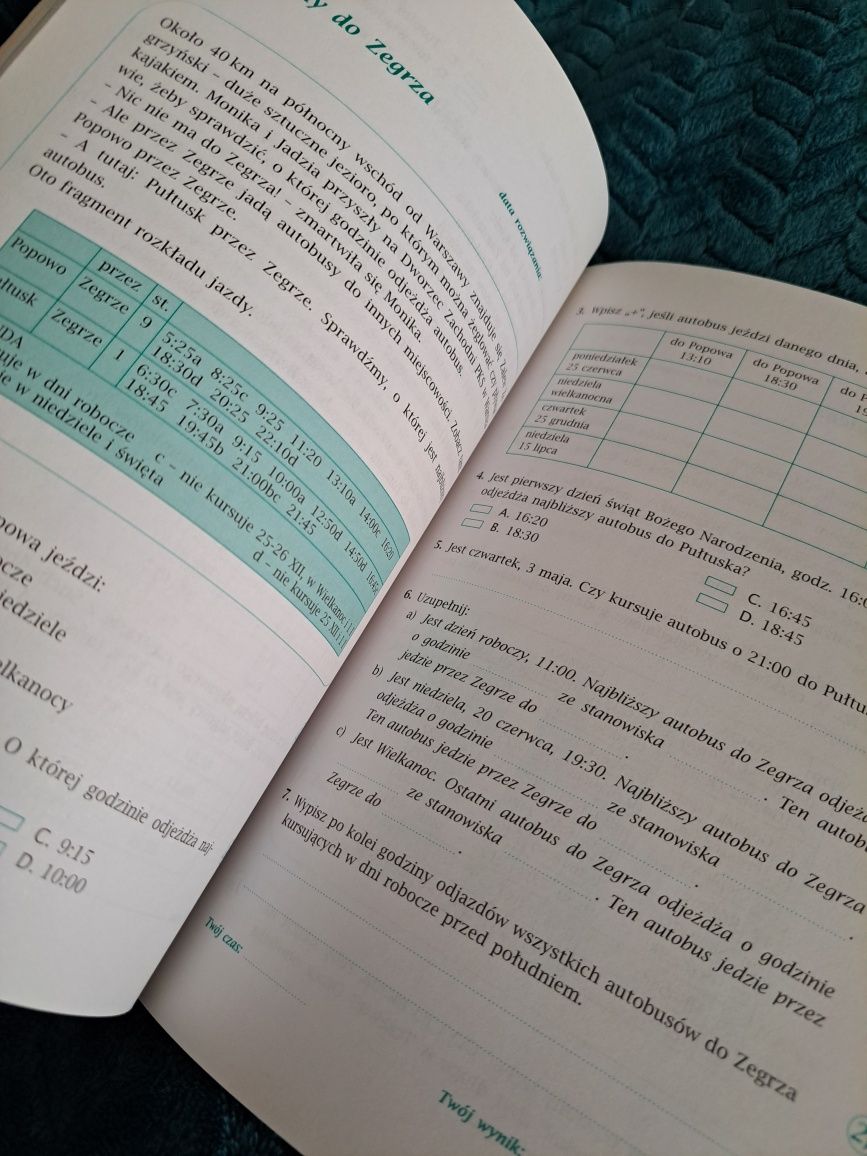 y do Zegrza
data rozwiązania:
Około 40 km na północny wschód od Warszawy znajduje się
grzyński – duże sztuczne jezioro, po którym można żeglować czy
kajakiem. Monika i Jadzia przyszły na Dworzec Zachodni PKS w
wie, żeby sprawdzić, o której godzinie odjeżdża autobus.
– Nic nie ma do Zegrza! – zmartwiła się Monika.
– Ale przez Zegrze jadą autobusy do innych miejscowości. Zobacz,
Popowo przez Zegrze.
– A tutaj: Pułtusk przez Zegrze. Sprawdźmy, o której jest
autobus.
Oto fragment rozkładu jazdy.
przez st.
Popowo Zegrze 9 5:25a 8:25c 9:25 11:20 13:10a 14:00c 16:20
18:30d 20:25 22:10d
łtusk Zegrze 1 6:30c 7:30a 9:15 10:00a 12:50d 14:50d 16:45
18:45 19:45b 21:00bc 21:45
DA
uje w dni robocze c – nie kursuje 25-26 XII, w Wielkanoc i
je w niedziele i święta d – nie kursuje 25 XII i
powa jeździ:
ocze
iedziele
elkanocy
O której godzinie odjeżdża naj-
C. 9:15
D. 10:00
3. Wpisz „+”, jeśli autobus jeździ danego dnia,
do Popowa 13:10
do Popowa 18:30
do P
poniedziałek
25 czerwca
niedziela
wielkanocna
czwartek
25 grudnia
niedziela
15 lipca
4. Jest pierwszy dzień świąt Bożego Narodzenia, godz. 16:
odjeżdża najbliższy autobus do Pułtuska?
A. 16:20 C. 16:45
B. 18:30 D. 18:45
5. Jest czwartek, 3 maja. Czy kursuje autobus o 21:00 do Pułtu
6. Uzupełnij:
a) Jest dzień roboczy, 11:00. Najbliższy autobus do Zegrza odjeż
o godzinie ze stanowiska . Ten autob
jedzie przez Zegrze do .
b) Jest niedziela, 20 czerwca, 19:30. Najbliższy autobus do Zegrza
odjeżdża o godzinie ze stanowiska .
Ten autobus jedzie przez Zegrze do .
c) Jest Wielkanoc. Ostatni autobus do Zegrza odjeżdża o godzinie
ze stanowiska . Ten autobus jedzie przez
Zegrze do .
7. Wypisz po kolei godziny odjazdów wszystkich autobusów do Zegrza
kursujących w dni robocze przed południem.
Twój czas:
Twój wynik: